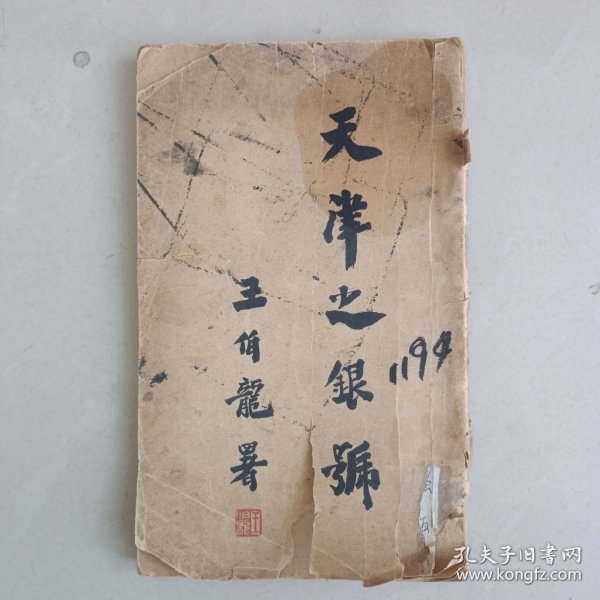 天津之銀號
王伯龍署
1194
孔夫子旧书网
www.kongfz.com